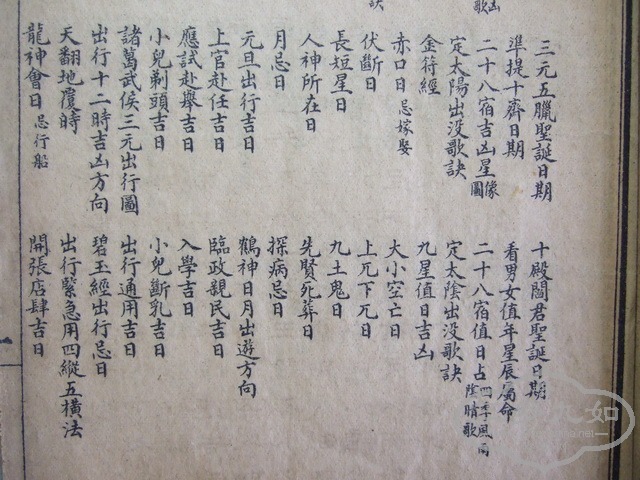 三元五臘聖誕日期
準提十齋日期
二十八宿吉凶星像圖
定太陽出没歌訣
金符經
赤口日 忌嫁娶
伏斷日
長短星日
人神所在日
月忌日
元旦出行吉日
上官赴任吉日
應試赴舉吉日
小兒剃頭吉日
諸葛武侯三元出行圖
出行十二時吉凶方向
天翻地覆時
龍神會日 忌行船
十殿閻君聖誕日期
看男女值年星辰屬命
二十八宿值日占四季風雨陰晴歌
定太陰出没歌訣
九星值日吉凶
大小空亡日
上兀下兀日
九土鬼日
先賢死葬日
探病忌日
鶴神日月出遊方向
臨政親民吉日
入學吉日
小兒斷乳吉日
出行通用吉日
碧玉經出行忌日
出行緊急用四縱五橫法
開張店肆吉日